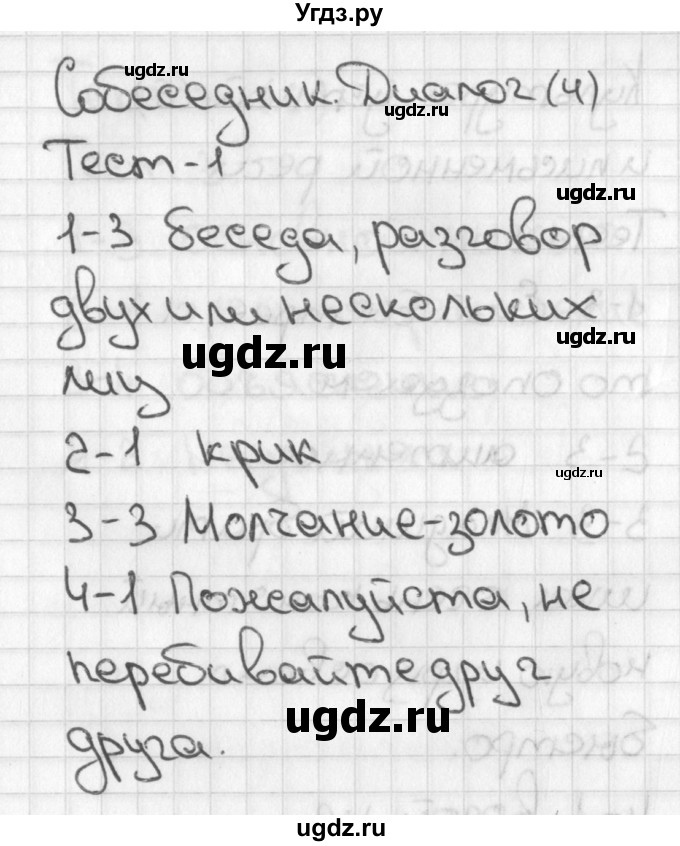 Угдз.ру
ugdz.ru
Собеседник. Диалог (4)
ugdz.ru
Тест-1
ugdz.ru
1-3 беседа, разговор
двух или нескольких
ugdz.ru
ugdz.ru
лиц
2-1 крик
ugdz.ru
3-3 Молчание-золото
4-1 Пожалуйста, не
перебивайте друг
ugdz.ru
друга.
ugdz.ru